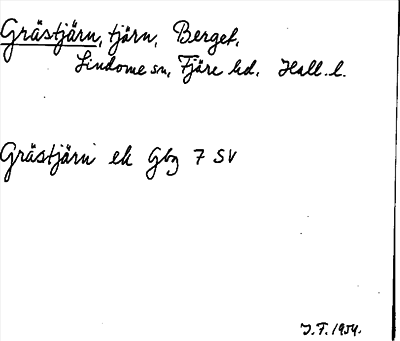 Grästjärn, tjärn, Berget,
Lindome sn, Fjäre hd, Hall. l.
Grästjärn ek Gbg 7 SV
J.F. 1954.